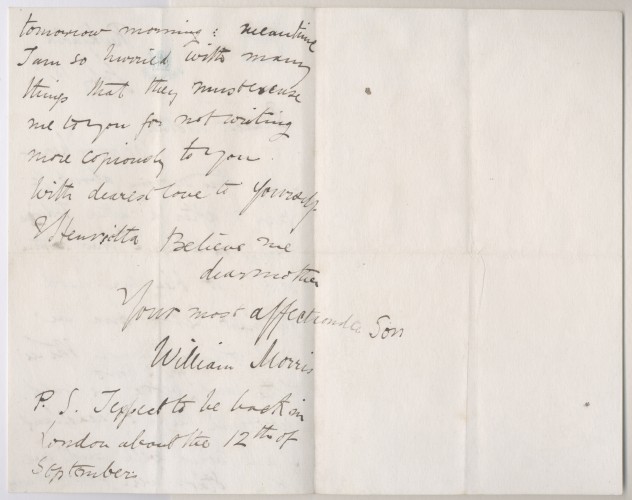 tomorrow morning: meantime
I am so hurried with many
things that they must excuse
me to you for not writing
more copiously to you.
With dearest love to yourself
& Henrietta Believe me
dear mother
Your most affectionate Son
William Morris
P. S. I expect to be back in
London about the 12th of
September